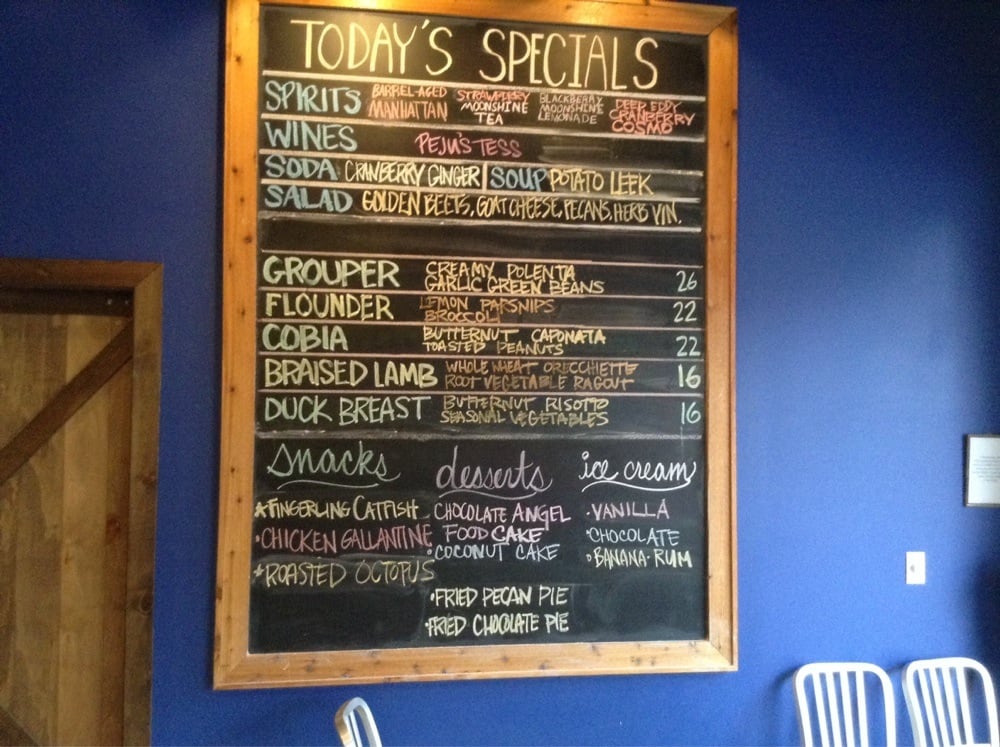 TODAY'S SPECIALS
SPIRITS BARREL-AGED MANHATTAN STRAWBERRY MOONSHINE TEA BLACKBERRY MOONSHINE LEMONADE DEEP EDDY CRANBERRY COSMO
WINES PEJU'S TESS
SODA CRANBERRY GINGER SOUP POTATO LEEK
SALAD GOLDEN BEETS, GOAT CHEESE, PECANS, HERB VIN.
GROUPER CREAMY POLENTA GARLIC GREEN BEANS 26
FLOUNDER LEMON PARSNIPS BROCCOLI 22
COBIA BUTTERNUT CAPONATA TOASTED PEANUTS 22
BRAISED LAMB WHOLE WHEAT ORECCHIETTE ROOT VEGETABLE RAGOUT 16
DUCK BREAST BUTTERNUT RISOTTO SEASONAL VEGETABLES 16
Snacks
FINGERLING CATFISH
CHICKEN GALLANTINE
ROASTED OCTOPUS
desserts
CHOCOLATE ANGEL
FOOD CAKE
COCONUT CAKE
FRIED PECAN PIE
FRIED CHOCOLATE PIE
ice cream
VANILLA
CHOCOLATE
BANANA-RUM